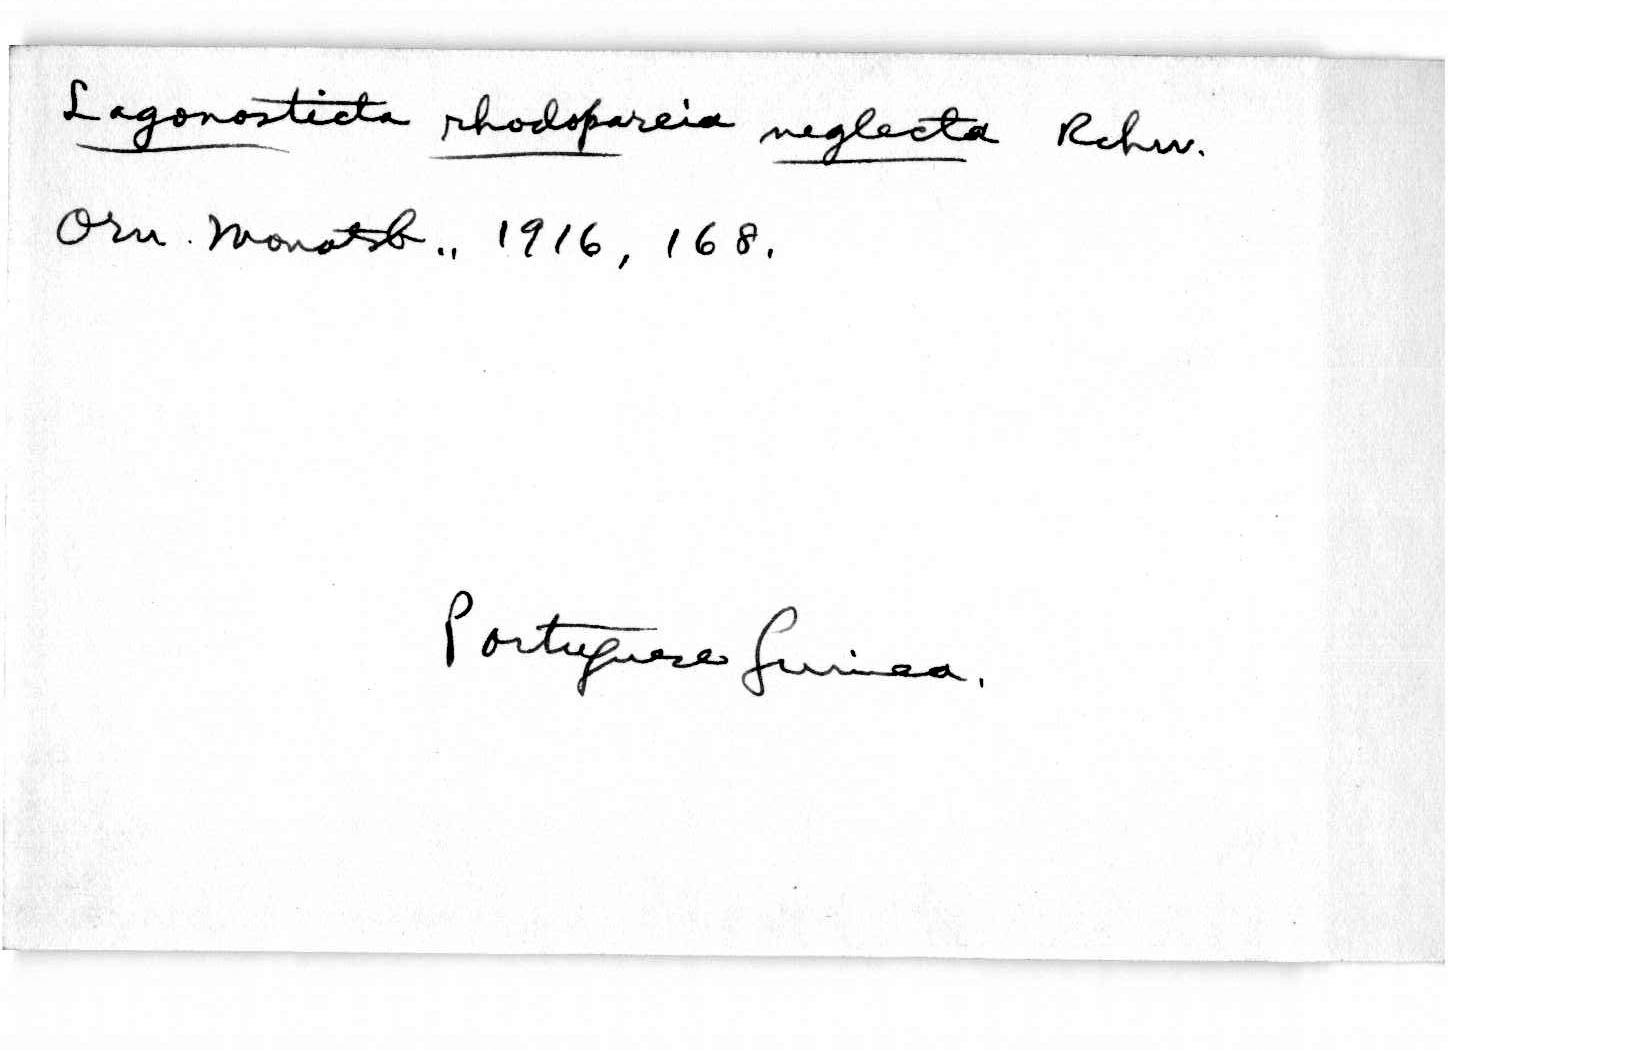 Lagonosticta rhodopareia neglecta Rchw.
Orn. Monatsb., 1916, 168.
Portuguese Guinea.